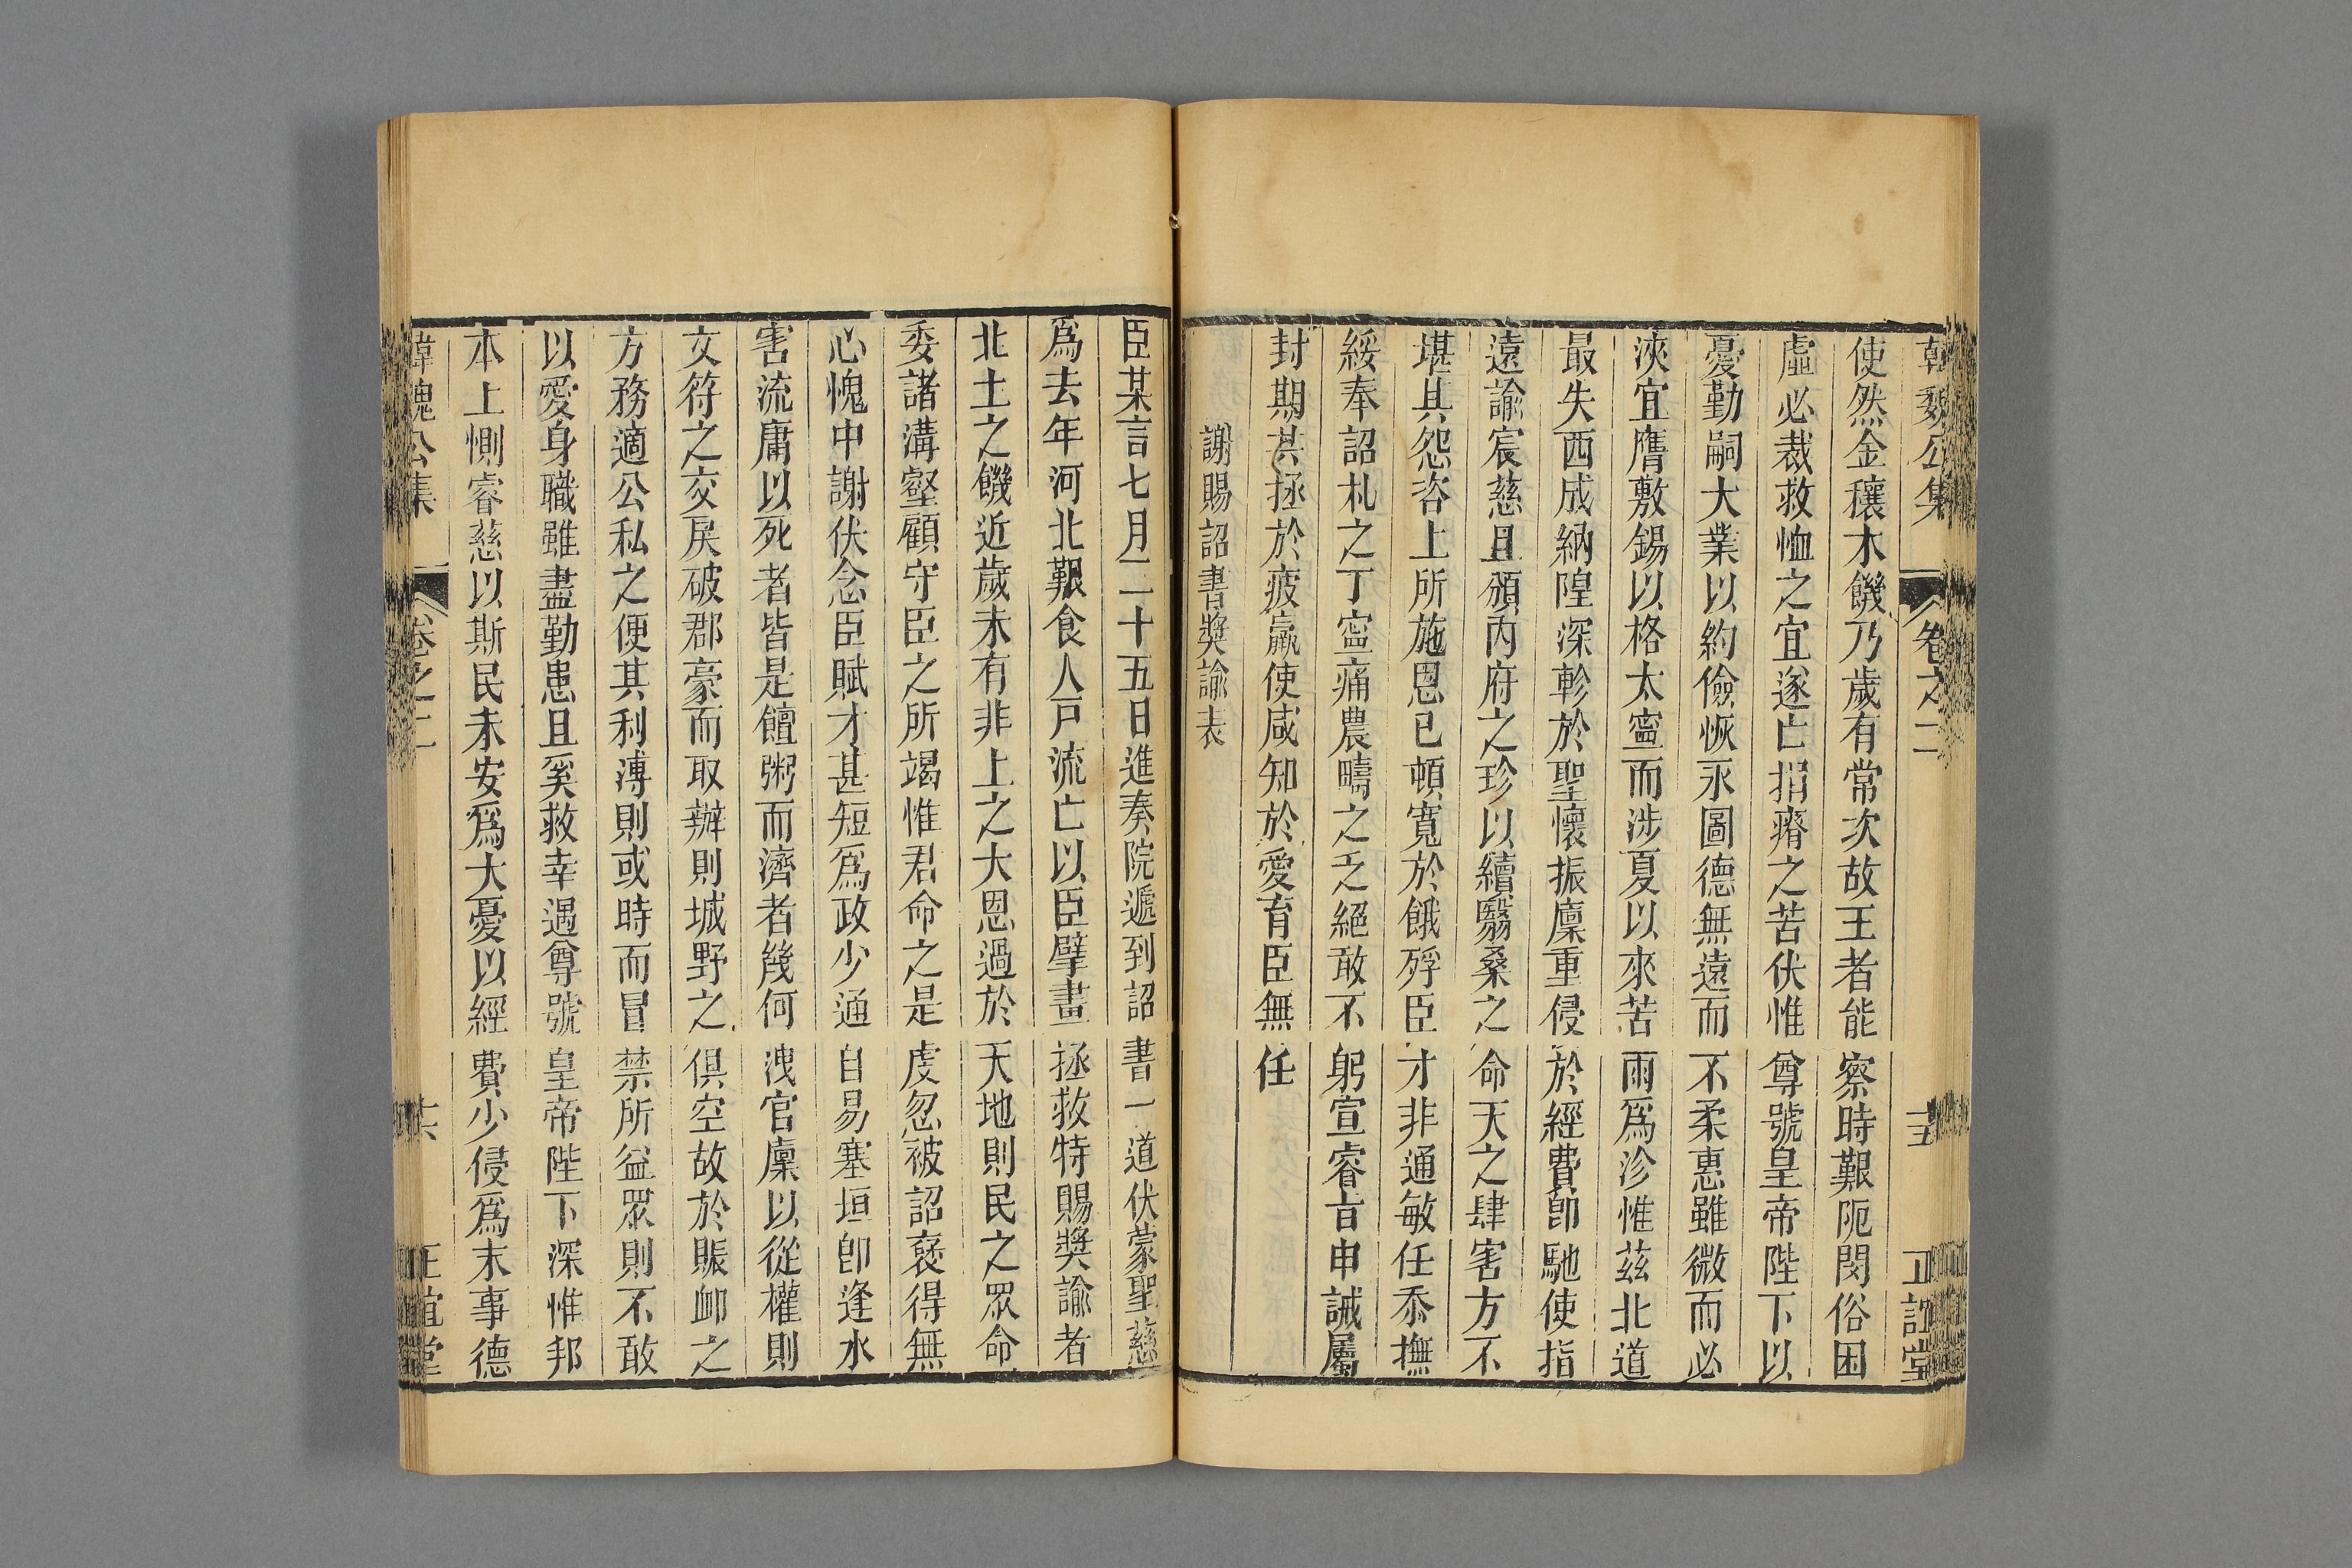 韓魏公集 卷之二 十五 正誼堂
使然金穰木饑乃歲有常次故王者能察時艱阨閔俗困
虛必裁救恤之宜遂亡捐瘠之苦伏惟尊號皇帝陛下以
憂勤嗣大業以約儉恢永圖德無遠而不柔惠雖微而必
浹宜膺敷錫以格太寧而涉夏以來苦雨爲沴惟茲北道
最失西成納隍深軫於聖懷振廩重侵於經費卽馳使指
遠諭宸慈且頒內府之珍以續翳桑之命天之肆害方不
堪其怨咨上所施恩已頓寬於餓殍臣才非通敏任忝撫
綏奉詔札之丁寧痛農疇之乏絕敢不躬宣睿旨申誡屬
封期其拯於疲羸使咸知於愛育臣無任
謝賜詔書奬諭表
臣某言七月二十五日進奏院遞到詔書一道伏蒙聖慈
爲去年河北艱食人戸流亡以臣擘畫拯救特賜奬諭者
北土之饑近歲未有非上之大恩過於天地則民之眾命
委諸溝壑顧守臣之所竭惟君命之是虔忽被詔襃得無
心愧中謝伏念臣賦才甚短爲政少通自易塞垣卽逢水
害流庸以死者皆是饘粥而濟者幾何洩官廩以從權則
文符之交戾破郡豪而取辦則城野之俱空故於賑衈之
方務適公私之便其利溥則或時而冒禁所益眾則不敢
以愛身職雖盡勤患且奚救幸遇尊號皇帝陛下深惟邦
本上惻睿慈以斯民未安爲大憂以經費少侵爲末事德
韓魏公集 卷之二 十六 正誼堂